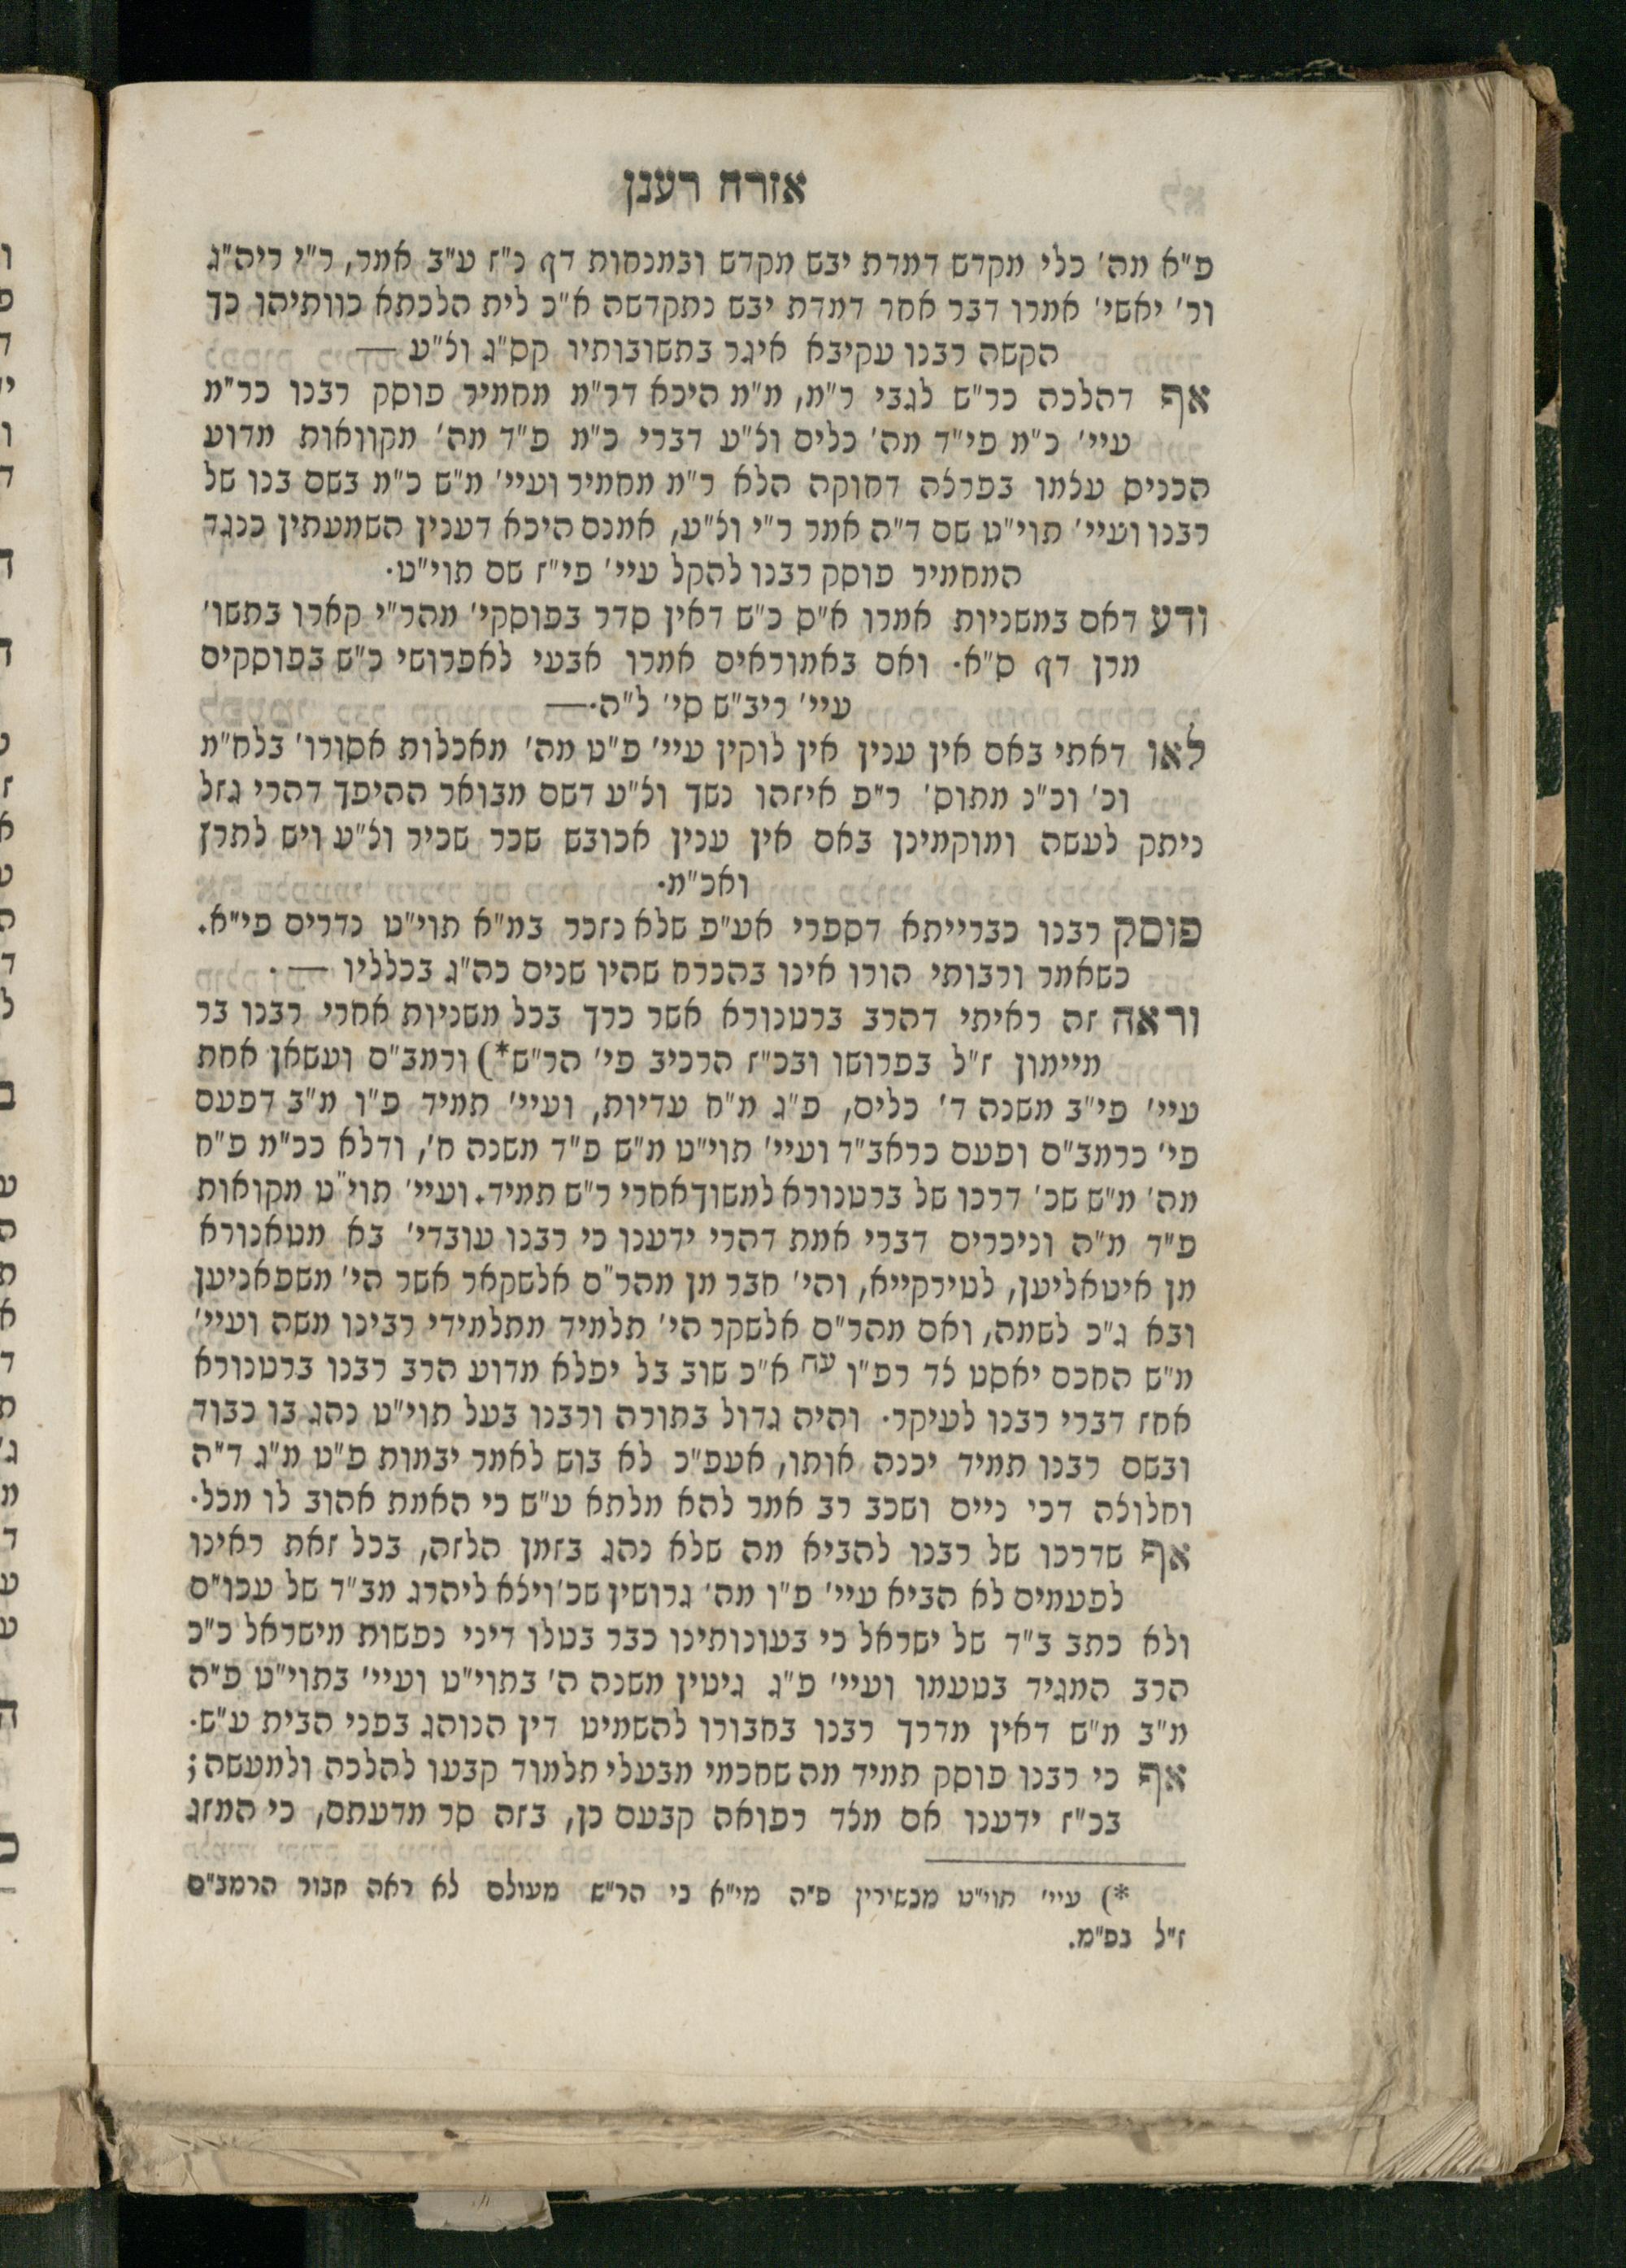 אזרח רענן
פ"א מה' כלי מקדש דמדת יבש מקדש ובמנחות דף נ"ז ע"ב אמר, ר"י ריה"ג
ור' יאשי' אמרו דבר אחר דמדת יבש נתקדשה א"כ לית הלכתא כוותיהו כך
הקשה רבנו עקיבא איגר בתשובותיו קס"ג וצ"ע —
אף דהלכה כר"ש לגבי ר"מ, מ"מ היכא דר"מ מחמיר פוסק רבנו כר"מ
עיי' כ"מ פי"ד מה' כלים וצ"ע דברי כ"מ פ"ד מה' מקוואות מדוע
הכניס עצמו בפרצה דחוקה הלא ר"מ מחמיר ועיי' מ"ש כ"מ בשם בנו של
רבנו ועיי' תוי"ט שם ד"ה אמר ר"י וצ"ע, אמנם היכא דענין השמעתין כנגד
המחמיר פוסק רבנו להקל עיי' פי"ז שם תוי"ט.
ודע דאם במשניות אמרו א"ס כ"ש דאין סדר בפוסקי' מהר"י קארו בתשו'
מרן דף ס"א. ואם באמוראים אמרו אבעי לאפרושי כ"ש בפוסקים
עיי' ריב"ש סי' ל"ה.—
לאו דאתי באם אין ענין אין לוקין עיי' פ"ט מה' מאכלות אסורו' בלח"מ
וכ' וכ"נ מתוס' ר"פ איזהו נשך וצ"ע דשם מבואר ההיפך דהרי גזל
ניתק לעשה ומוקמינן באם אין ענין אכובש שכר שכיר וצ"ע ויש לתרץ
ואכ"מ.
פוסק רבנו כברייתא דספרי אע"פ שלא נזכר במ"א תוי"ט נדרים פי"א.
כשאמר ורבותי הורו אינו בהכרח שהיו שנים כה"ג בכלליו — .
וראה זה ראיתי דהרב ברטנורא אשר כרך בכל משניות אחרי רבנו בר
מיימון ז"ל בפרושו ובכ"ז הרכיב פי' הר"ש*) ורמב"ם ועשאן אחת
עיי' פי"ב משנה ד' כלים, פ"ג מ"ח עדיות, ועיי' תמיד פ"ו מ"ב דפעם
פי' כרמב"ם ופעם כראב"ד ועיי' תוי"ט מ"ש פ"ד משנה ח', ודלא ככ"מ פ"ח
מה' מ"ש שכ' דרכו של ברטנורא למשוך אחרי ר"ש תמיד. ועיי' תוי"ט מקואות
פ"ד מ"ה וניכרים דברי אמת דהרי ידענו כי רבנו עובדי' בא מטאנורא
מן איטאליען, לטירקייא, והי' חבר מן מהר"ם אלשקאר אשר הי' משפאניען
ובא ג"כ לשמה, ואם מהר"ם אלשקר הי' תלמיד מתלמידי רבינו משה ועיי'
מ"ש החכם יאסט צד רפ"ו עח א"כ שוב בל יפלא מדוע הרב רבנו ברטנורא
אחז דברי רבנו לעיקר. והיה גדול בתורה ורבנו בעל תוי"ט נהג בו כבוד
ובשם רבנו תמיד יכנה אותו, אעפ"כ לא בוש לאמר יבמות פ"ט מ"ג ד"ה
וחלוצה דכי ניים ושכב רב אמר להא מלתא ע"ש כי האמת אהוב לו מכל.
אף שדרכו של רבנו להביא מה שלא נהג בזמן הלזה, בכל זאת ראינו
לפעמים לא הביא עיי' פ"ו מה' גרושין שכ' ויצא ליהרג מב"ד של עכו"ם
ולא כתב ב"ד של ישראל כי בעונותינו כבר בטלו דיני נפשות מישראל כ"כ
הרב המגיד בטעמו ועיי' פ"ג גיטין משנה ה' בתוי"ט ועיי' בתוי"ט פ"ה
מ"ב מ"ש דאין מדרך רבנו בחבורו להשמיט דין הנוהג בפני הבית ע"ש.
אף כי רבנו פוסק תמיד מה שחכמי מבעלי תלמוד קבעו להלכה ולמעשה;
בכ"ז ידענו אם מצד רפואה קבעם כן, בזה סר מדעתם, כי המזג
*) עיי' תוי"ט מכשירין פ"ה מי"א כי הר"ש מעולם לא ראה חבור הרמב"ם
ז"ל בפ"מ.